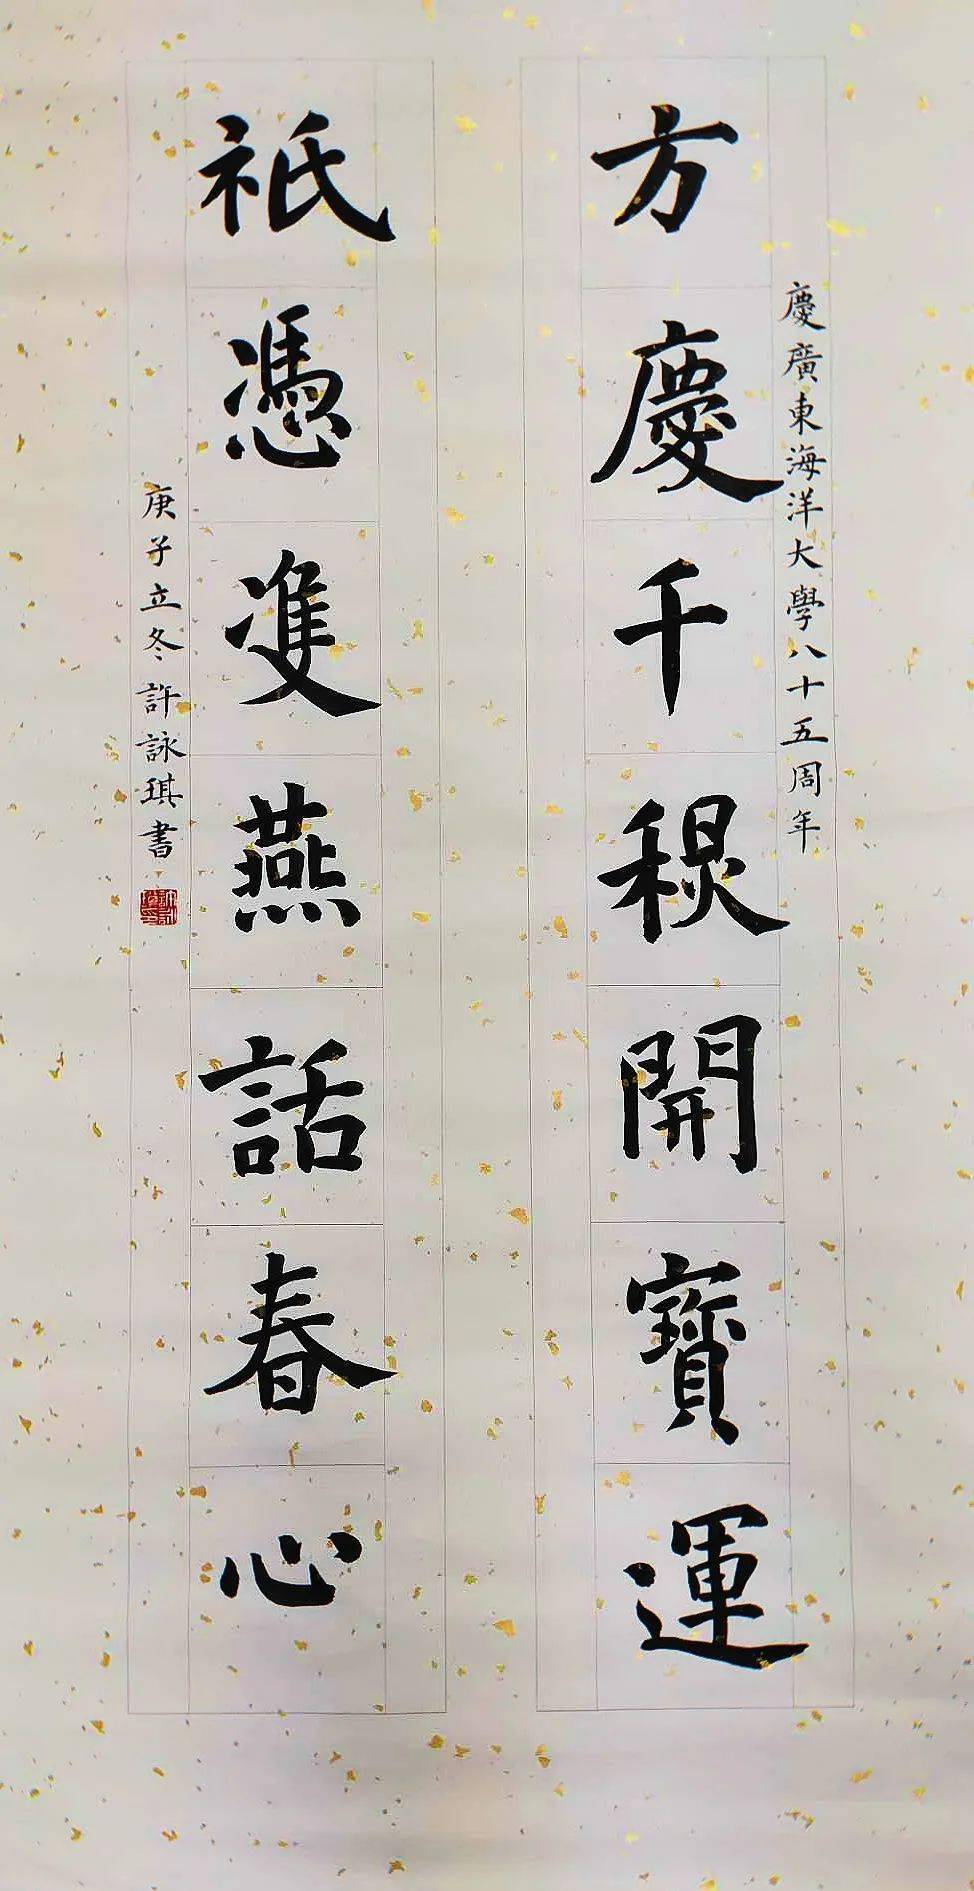 慶廣東海洋大學八十五周年
方慶千開寶運
祇憑雙燕話春心
庚子立冬許詠琪書